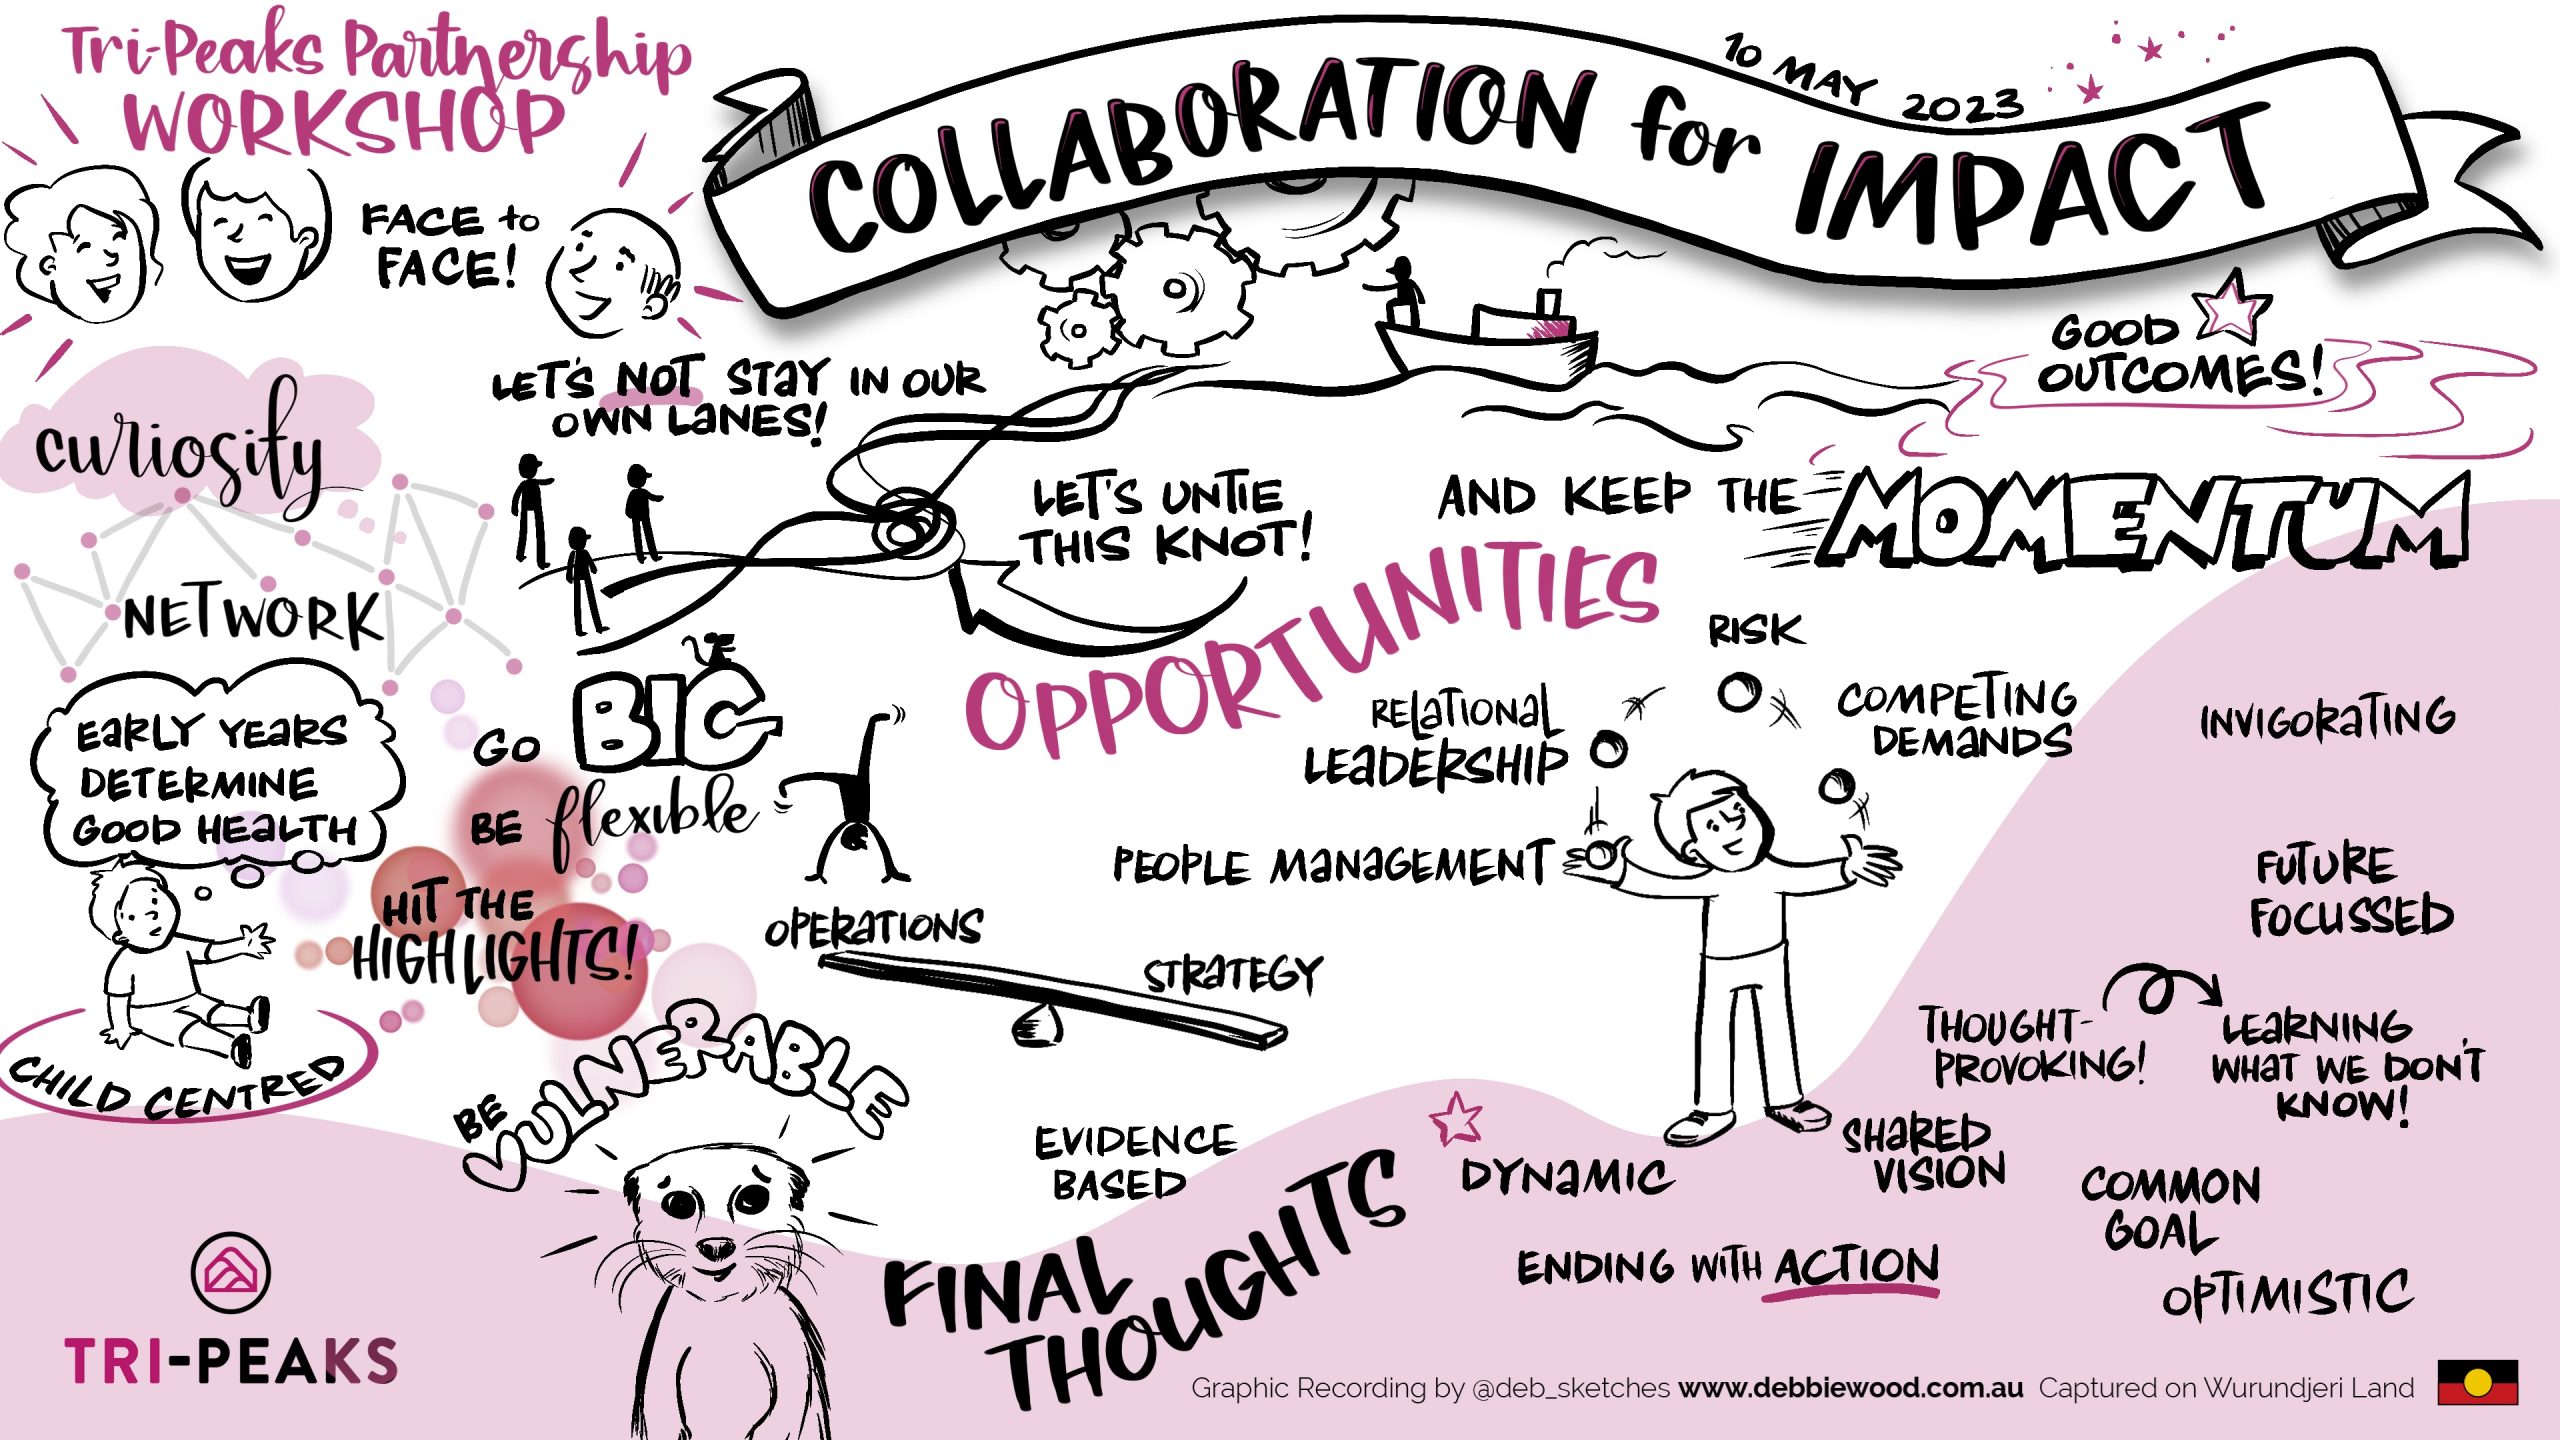 Tri-Peaks Partnership
WORKSHOP
COLLABORATION for IMPACT
10 MAY 2023
FACE to
FACE!
curiosity
NETWORK
LET'S NOT STAY IN OUR
OWN LANES!
LET'S UNTIE
THIS KNOT!
GOOD
OUTCOMES!
AND KEEP THE MOMENTUM
EARLY YEARS
DETERMINE
GOOD HEALTH
CHILD CENTRED
GO BIG
BE flexible
HIT THE
HIGHLIGHTS!
BE
VULNERABLE
OPPORTUNITIES
RISK
RELATIONAL
LEADERSHIP
COMPETING
DEMANDS
PEOPLE MANAGEMENT
OPERATIONS
STRATEGY
EVIDENCE
BASED
FINAL
THOUGHTS
INVIGORATING
FUTURE
FOCUSSED
THOUGHT-
PROVOKING!
LEARNING
WHAT WE DON'T
KNOW!
DYNAMIC
SHARED
VISION
COMMON
GOAL
ENDING WITH ACTION
OPTIMISTIC
TRI-PEAKS
Graphic Recording by @deb_sketches www.debbiewood.com.au Captured on Wurundjeri Land